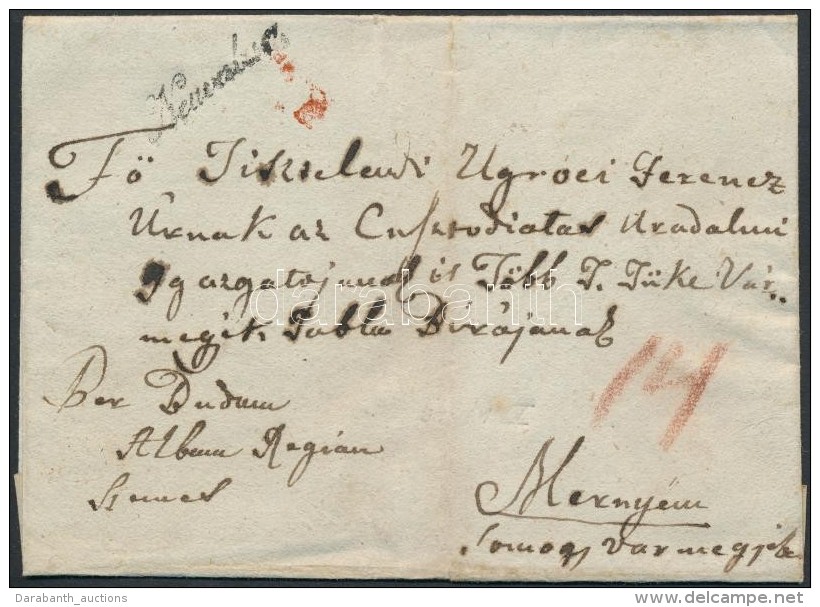 Kecskemét
Fö Tisztelendi Ugróci Ferencz
Úrnak az Custodiatus Uradalmi
Igazgatojanak és Több T. Tüke Vár
megyék Tabla Birájanak
Per Budam
Albam Regiam
Lemes
14
Mernyém
Somogy Varmegyék
darabanth
Darabanth_auctions
delcampe.net